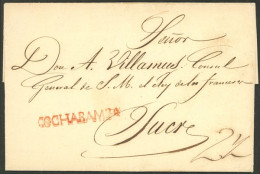 Señor
Don A. Villamus, Consul
General de S. M. el Rey de los Franceses
COCHABAMBA
Sucre